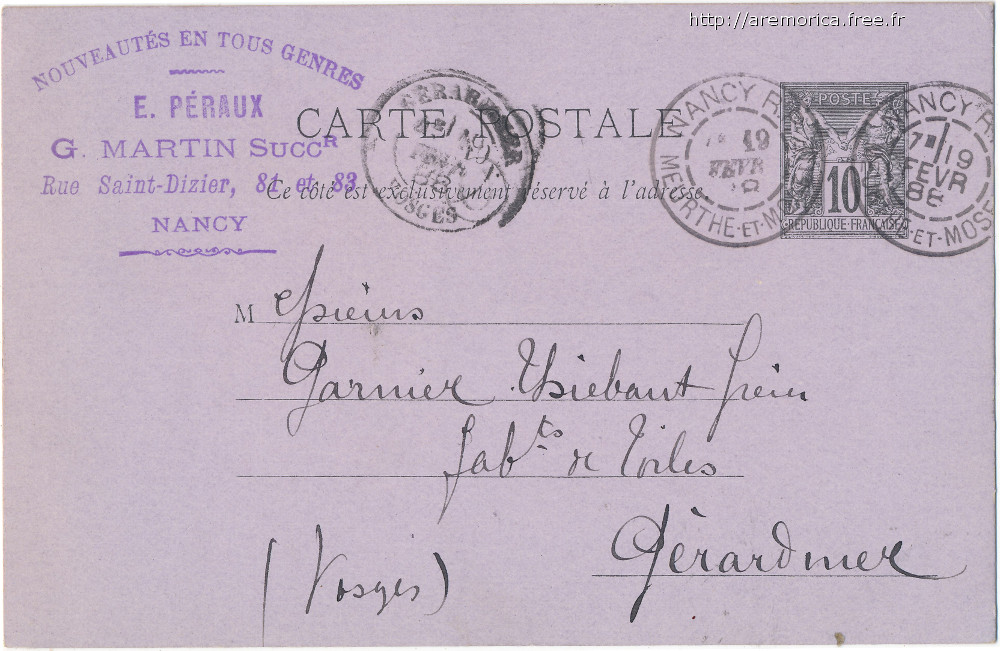 http://aremorica.free.fr
NOUVEAUTÉS EN TOUS GENRES
E. PÉRAUX
G. MARTIN SUCCR
Rue Saint-Dizier, 81 et 83
NANCY
CARTE POSTALE
Ce côté est exclusivement réservé à l'adresse.
GERARDMER
FEVR
VOSGES
NANCY R.
19
FEVR
MEURTHE-ET-MOS
POSTE
10
REPUBLIQUE FRANÇAISE
NANCY R.
7E 19
FEVR
86
ET-MOSE
M essieurs
Garnier Thiébaut frères
fabts de Toiles
Gérardmer
(Vosges)